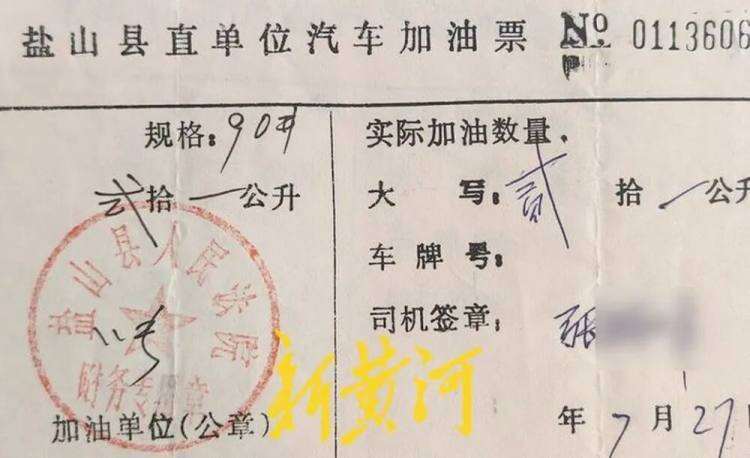 盐山县直单位汽车加油票 № 0113606
规格：90#
贰拾一公升
盐山县人民法院
财务专用章
加油单位(公章)
实际加油数量．
大 写：贰拾一公升
车牌号：
司机签章：张
年7月27
新黄河